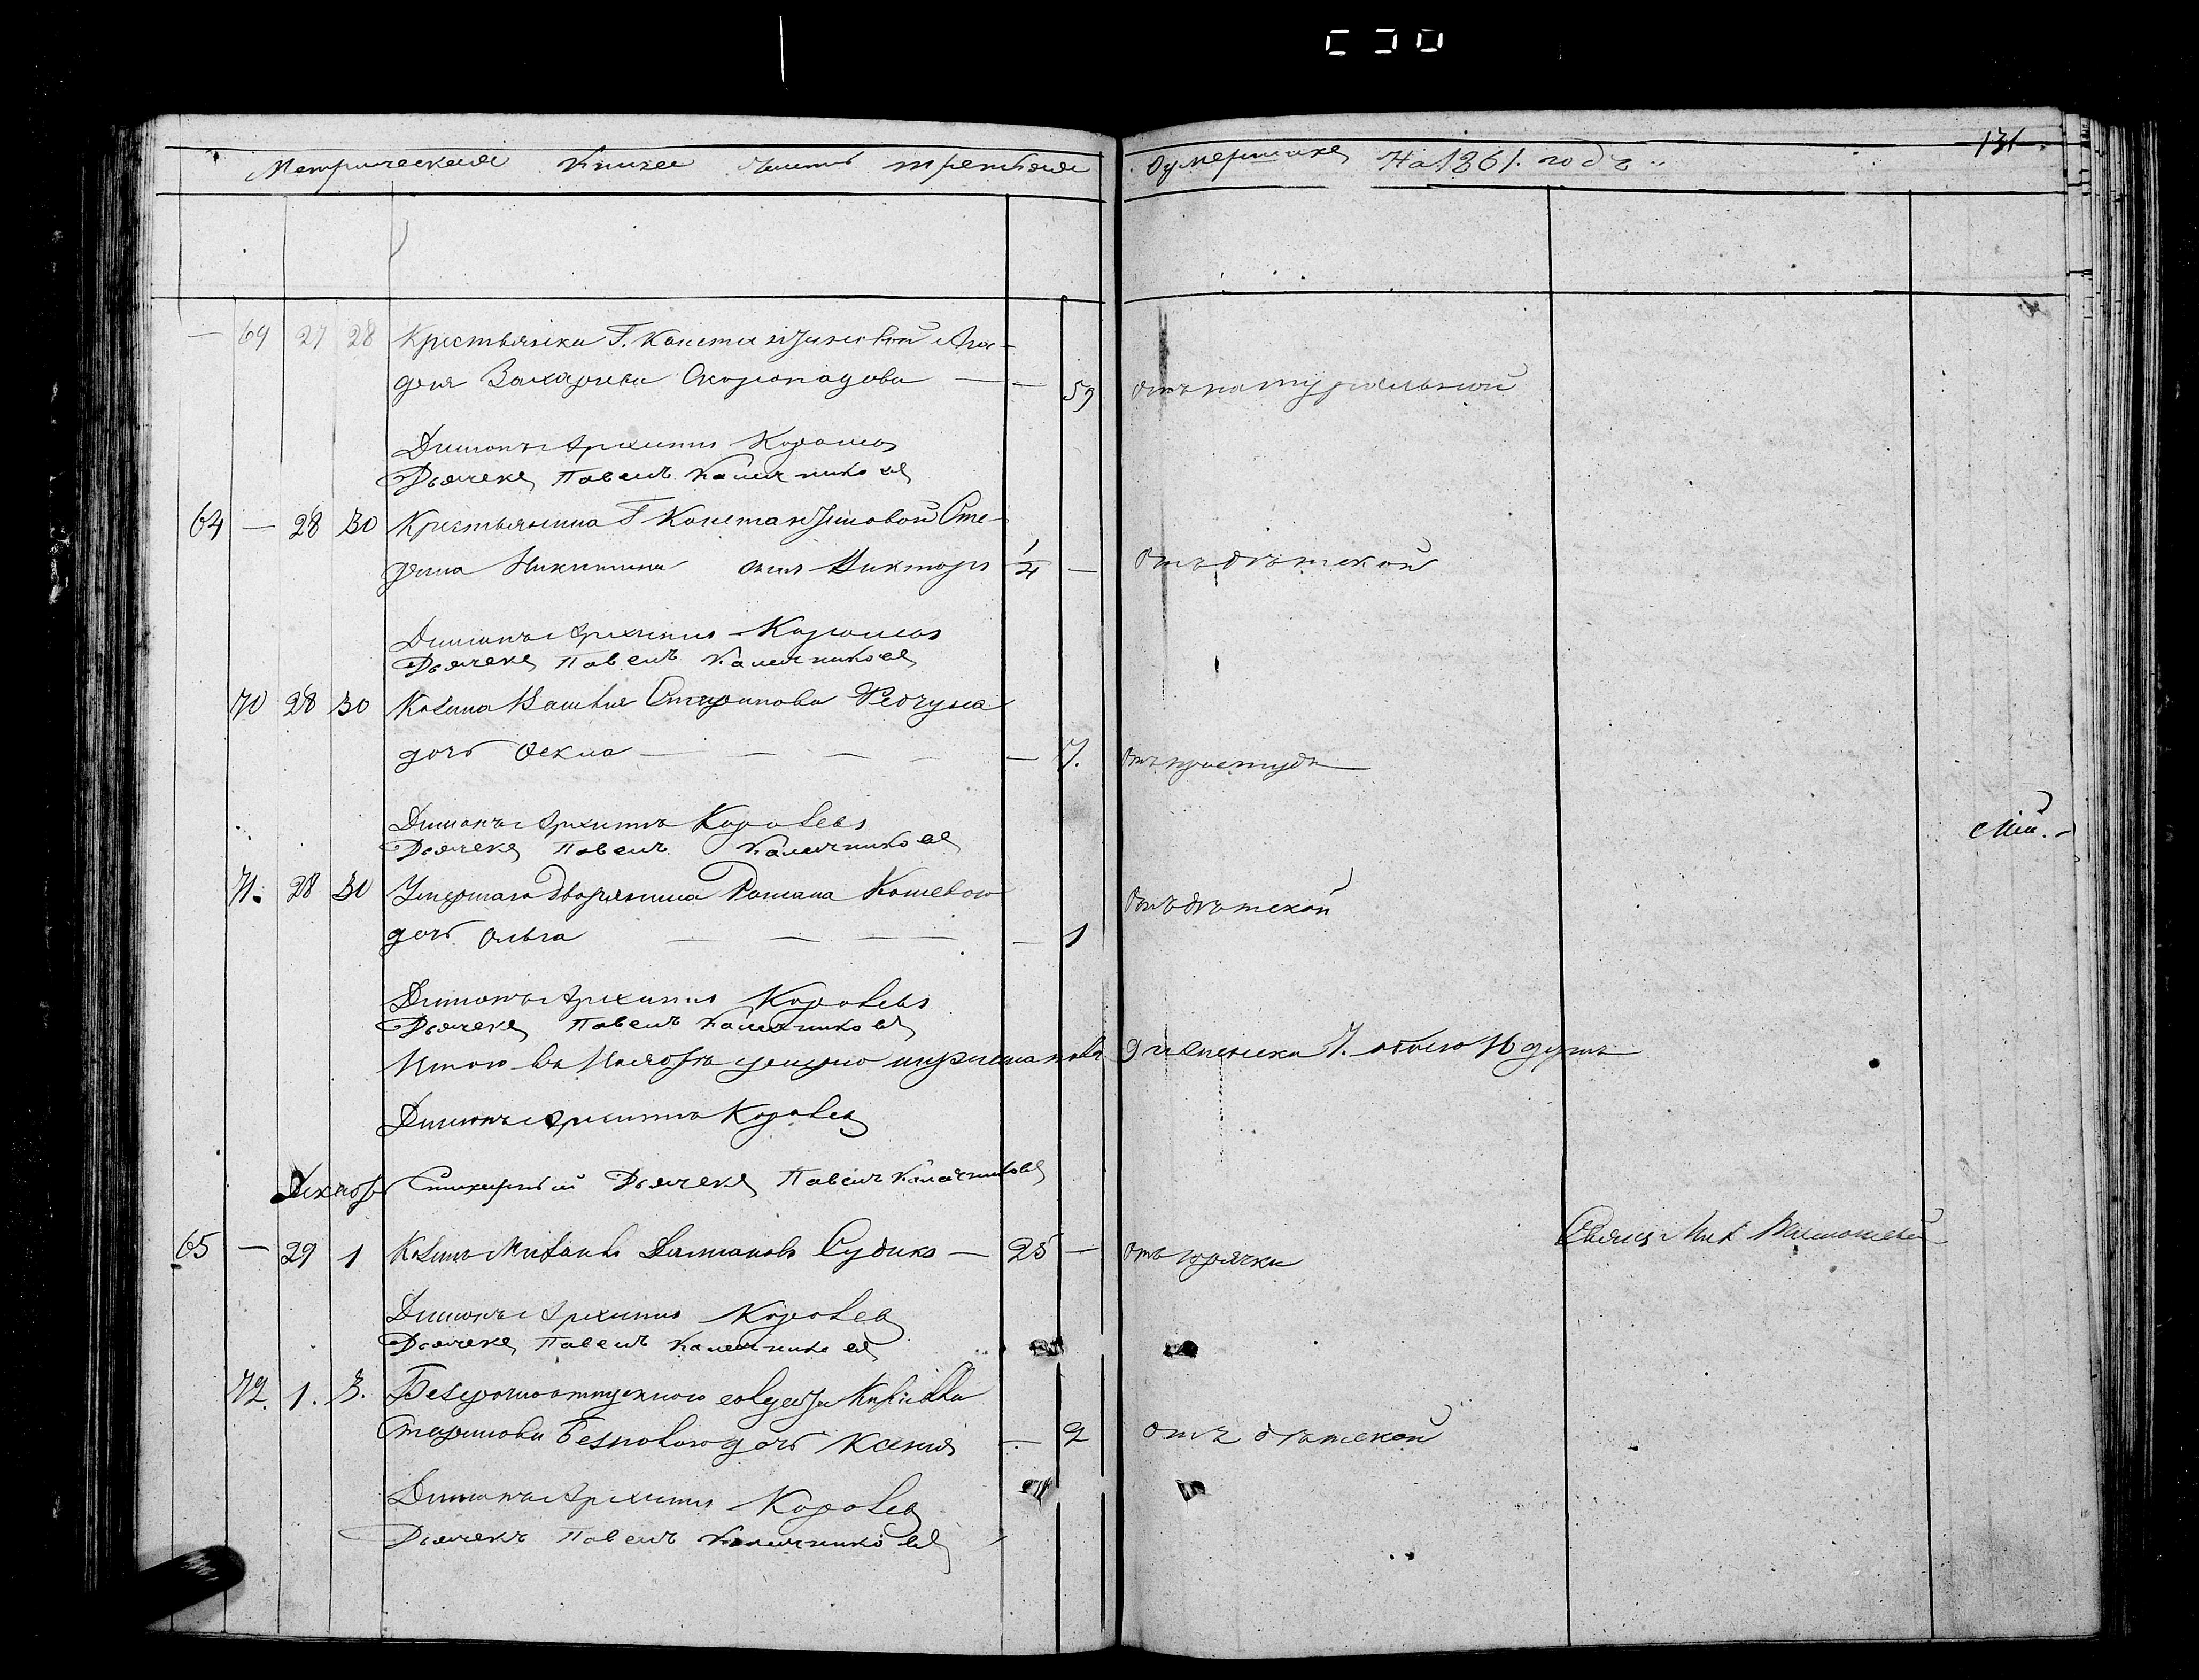 Метрической книги часть третья
О умершихъ На 1861. годъ.
131
— 69 27 28 Крестьянка Г. Константиновой
Захарьева Скоропадова — — 59 отъ натуральной
Діаконъ Архипъ Королевъ
Дьячекъ Павелъ Калачниковъ
64 — 28 30 Крестьянина Г Константиновой Сте-
Никитина сынъ Викторъ 1/4 — отъ дѣтской
Діаконъ Архипъ Королевъ
Дьячекъ Павелъ Калачниковъ
70 28 30 Козака Спиридонова
дочь Фекла — — — — — 7. отъ простуды
Діаконъ Архипъ Королевъ
Дьячекъ Павелъ Калачниковъ
71. 28 30 Умершаго Дворянина Романа Кошевого
дочь Ольга — — — — — 1 отъ дѣтской
Діаконъ Архипъ Королевъ
Дьячекъ Павелъ Калачниковъ
Итого въ Ноябрѣ умерло мужеска пола 9 и женска 7. обоего 16 душъ
Діаконъ Архипъ Королевъ
Декабрь Стихарный Дьячекъ Павелъ Калачниковъ
65 — 29 1 Козакъ Михаилъ Судико — 25 — отъ горячки
Діаконъ Архипъ Королевъ
Дьячекъ Павелъ Калачниковъ
72. 1. 3. Безсрочноотпускного Кирилла
дочь Ксенія — 2 отъ дѣтской
Діаконъ Архипъ Королевъ
Дьячекъ Павелъ Калачниковъ